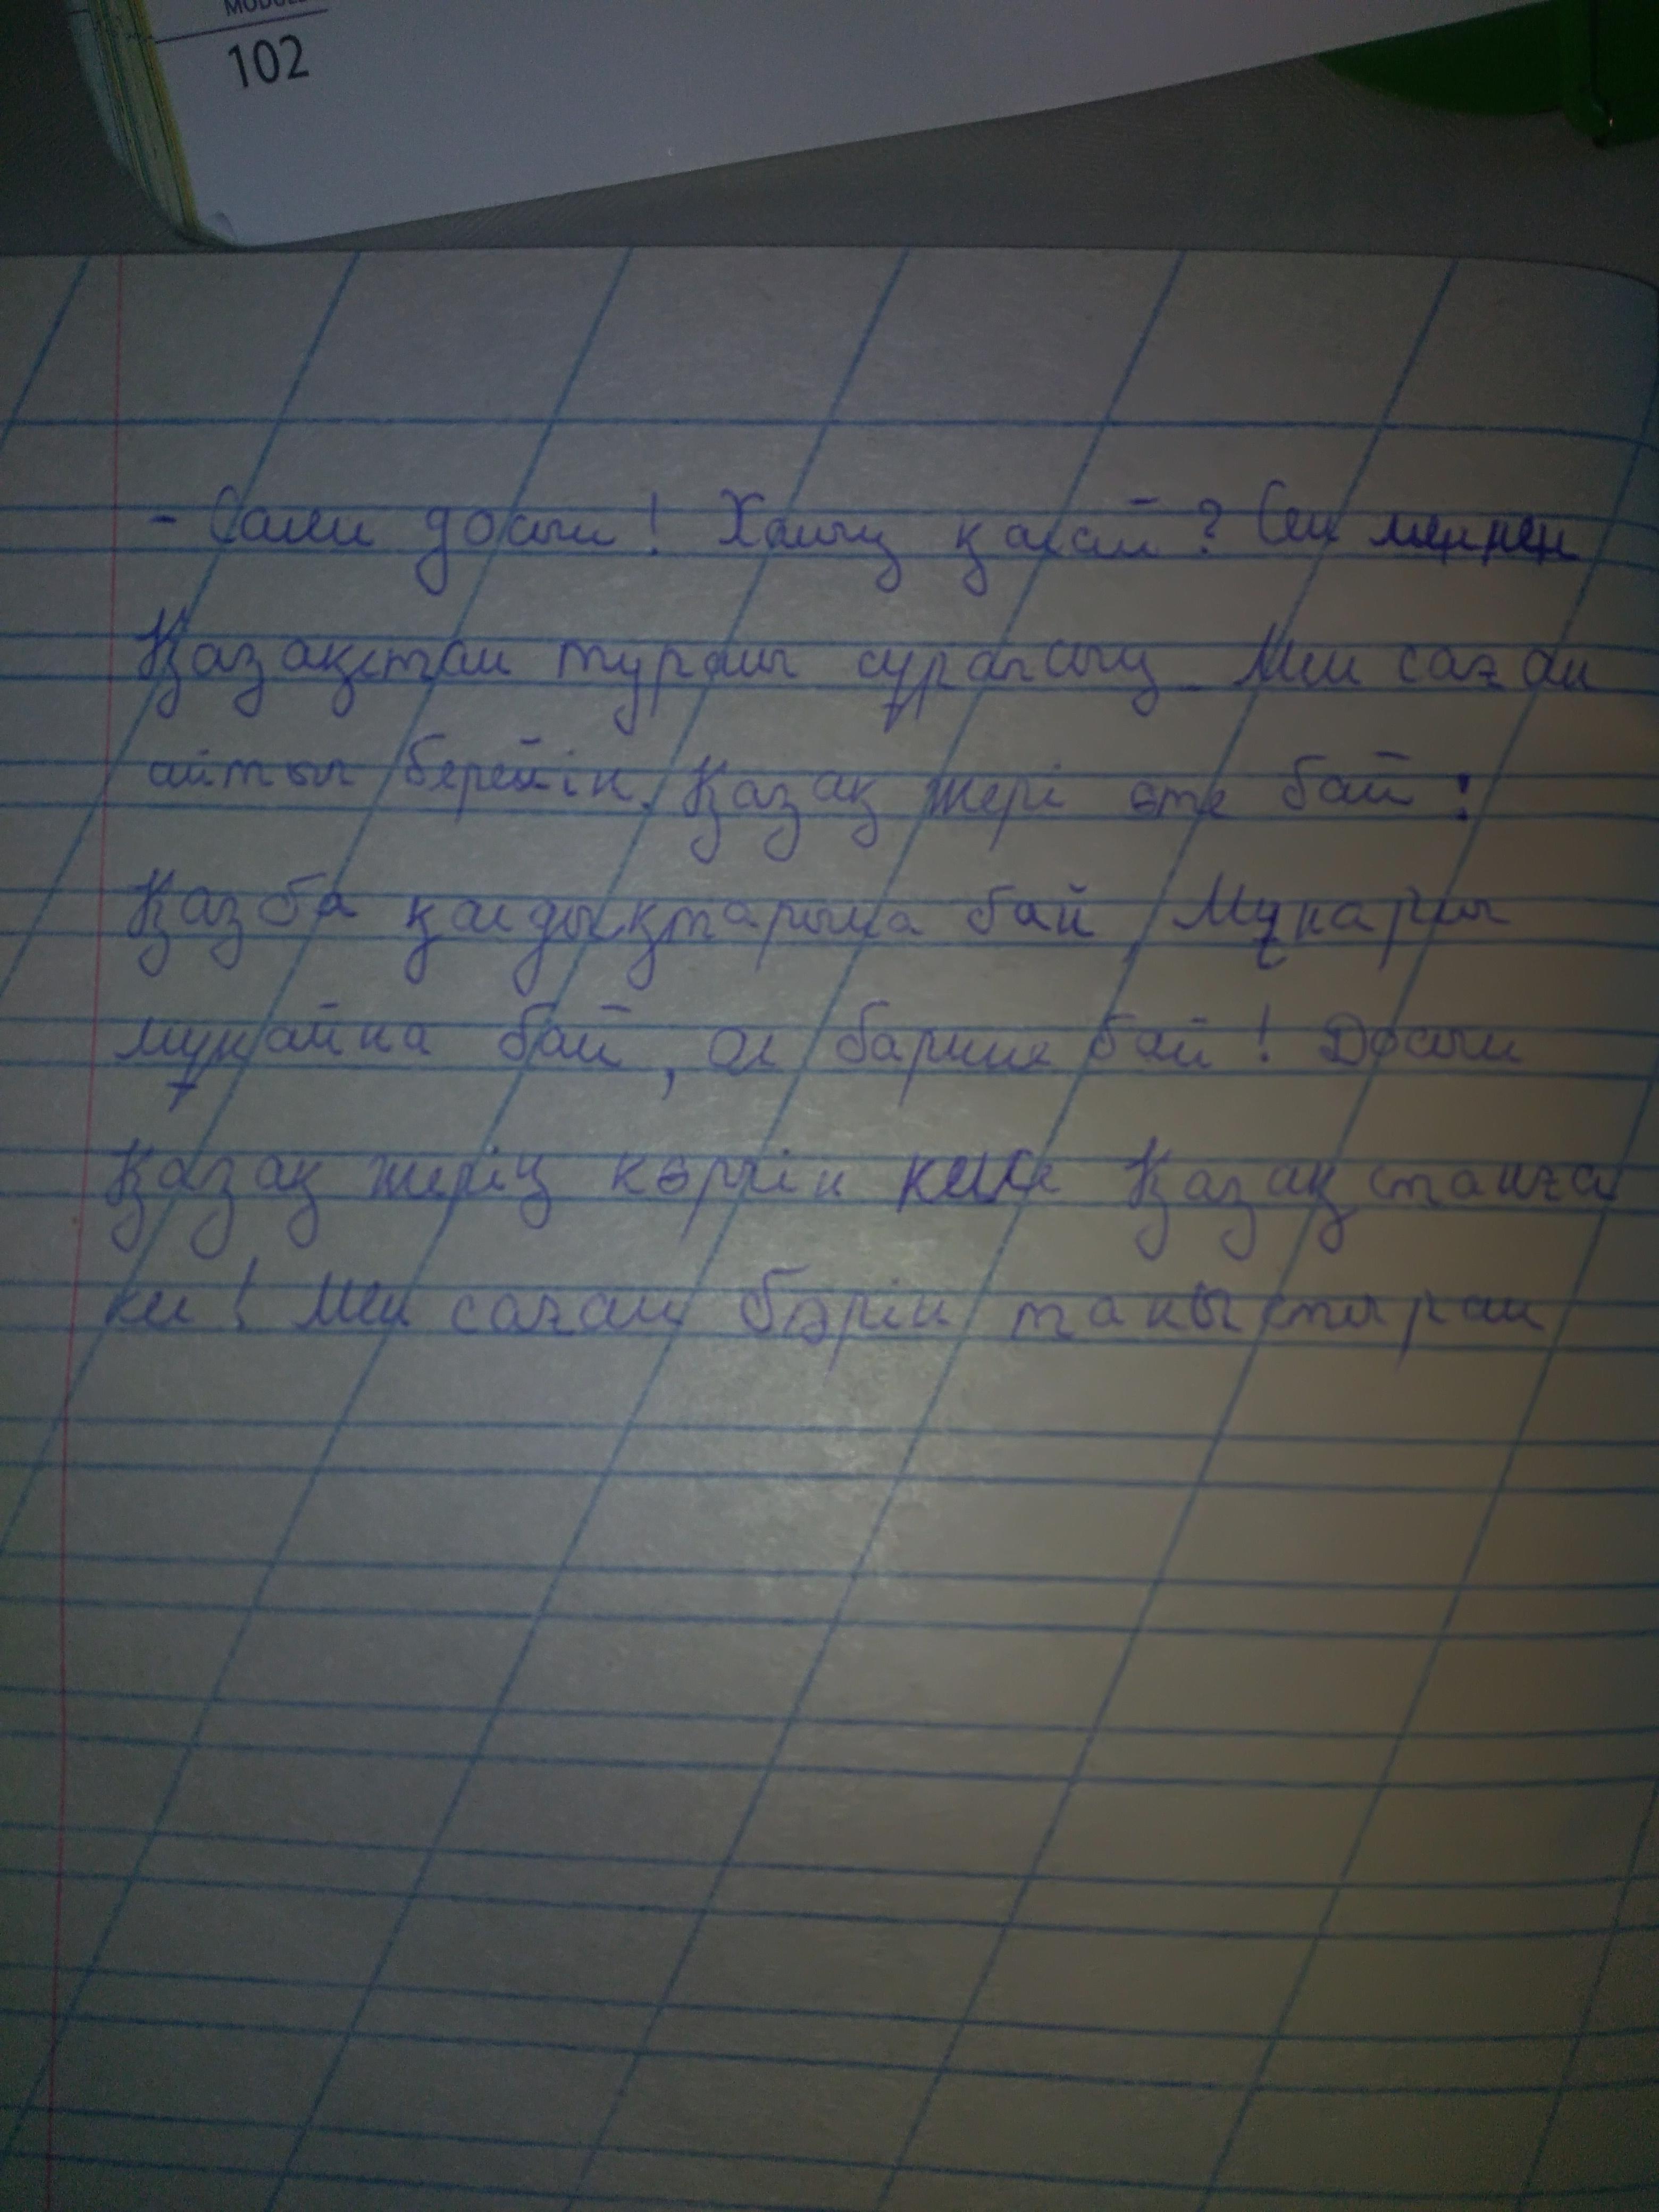 MODULE
102
- Салем досым! Халың қалай? Сен меннен
Қазақстан туралы сұрапсың. Мен саған
айтып берейін. Қазақ жері өте бай:
Қазба қалдықтарына бай,
мұнайна бай, ол бай! Досым
Қазақ жерің көргің келсе Қазақстанға
кел! Мен саған бәрін таныстырам